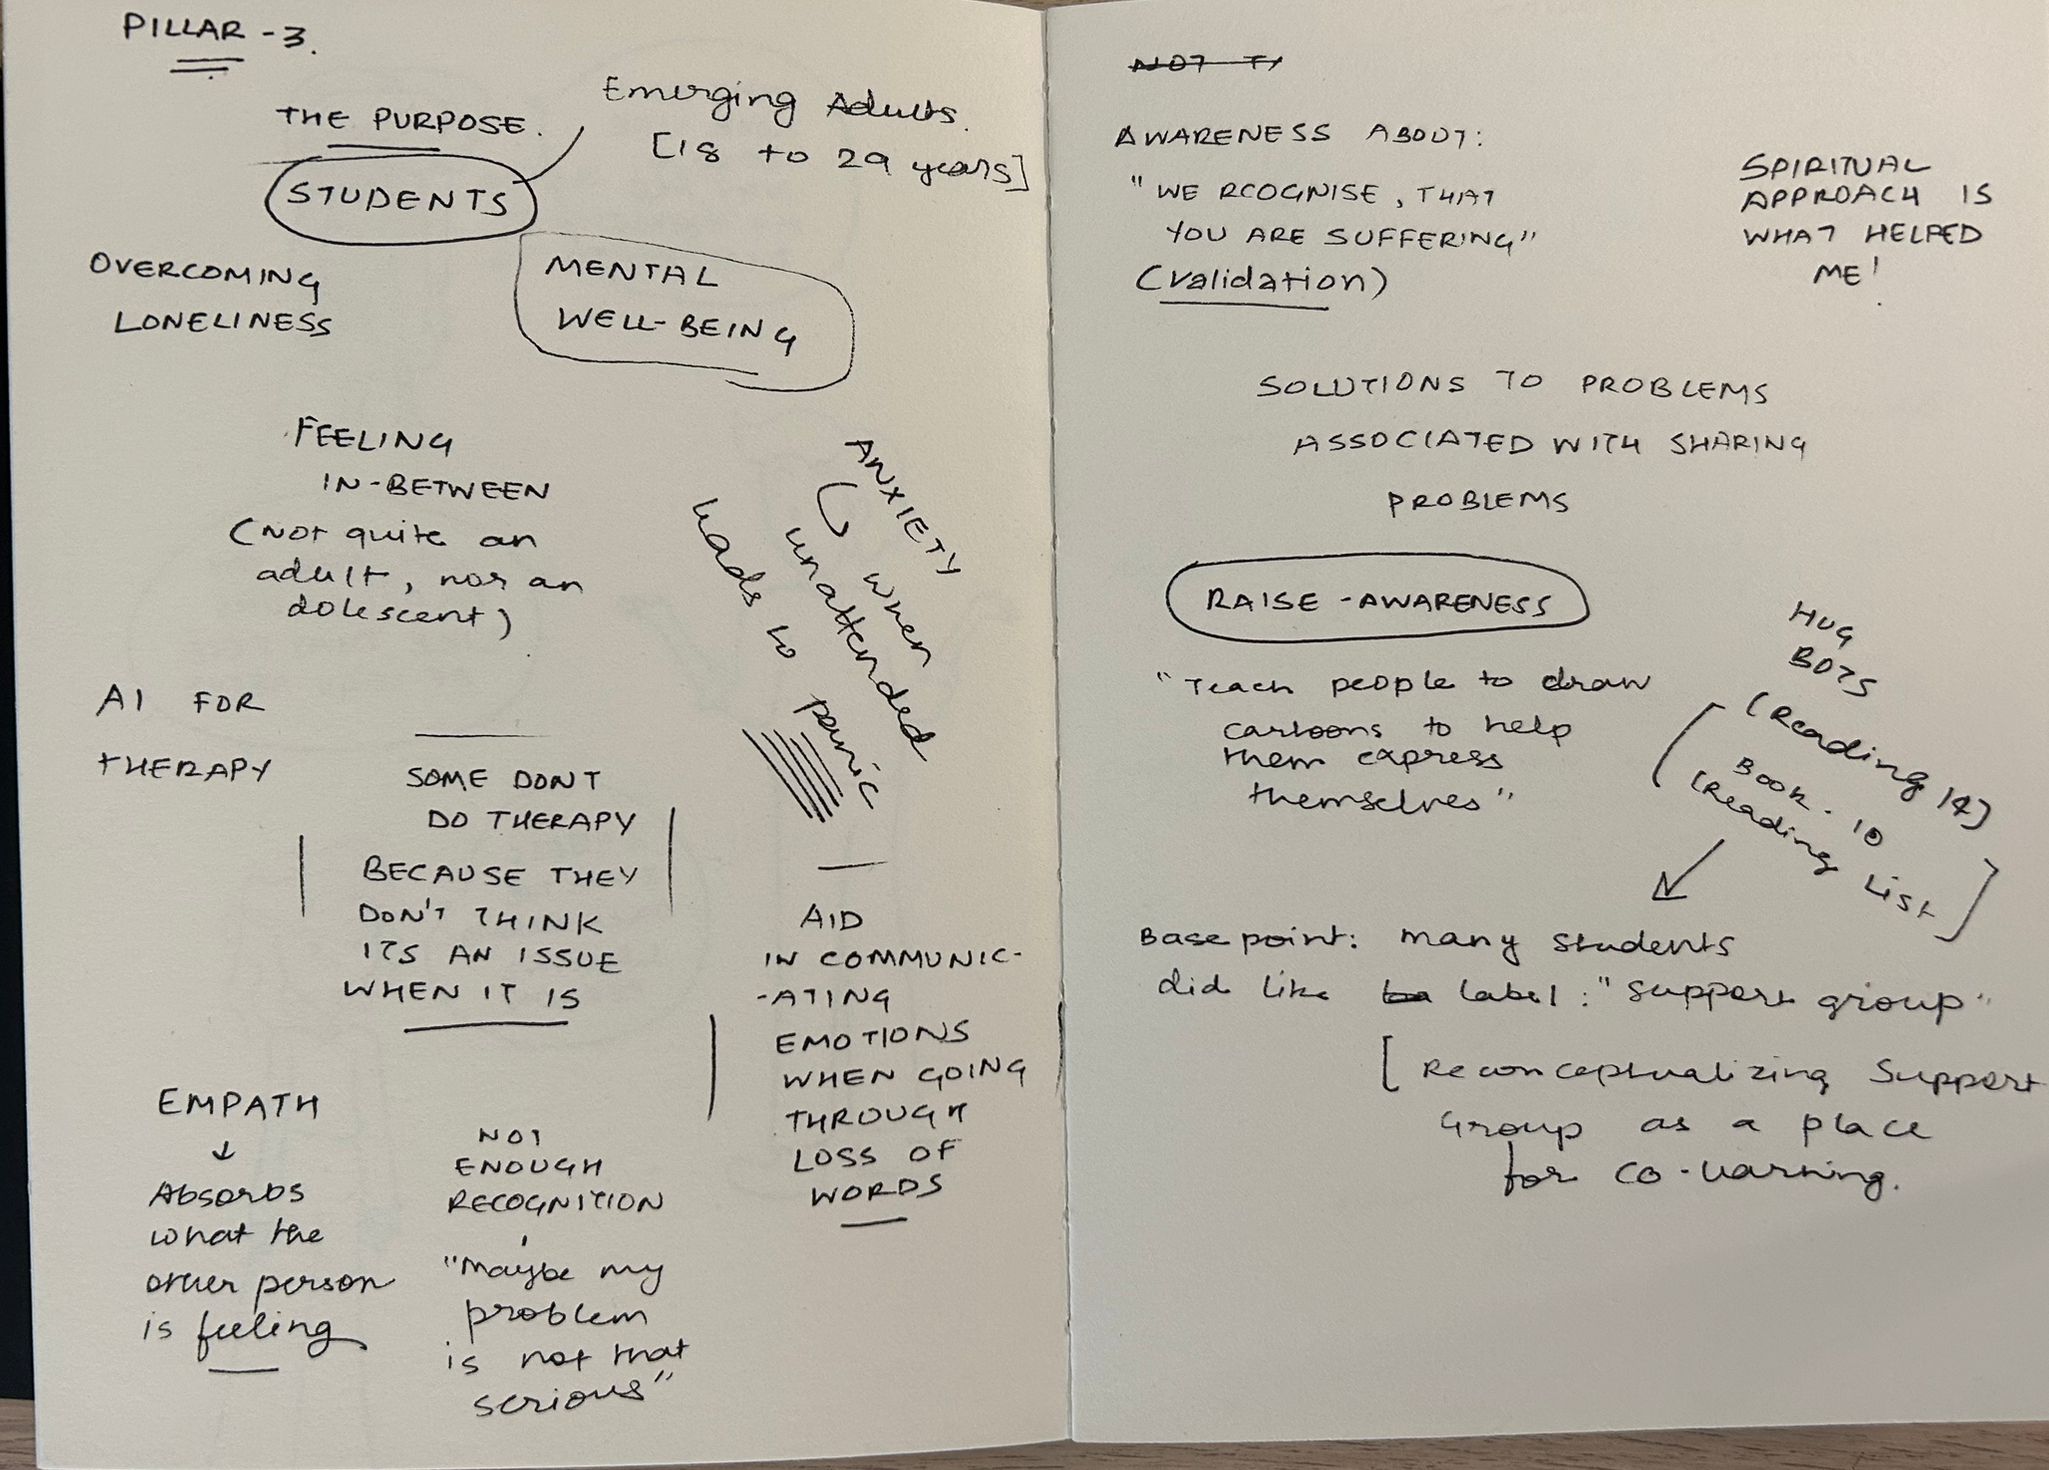 PILLAR - 3.
THE PURPOSE.
STUDENTS
Emerging Adults.
[18 to 29 years]
OVERCOMING
LONELINESS
MENTAL
WELL-BEING
FEELING
IN-BETWEEN
(Not quite an
adult, nor an
dolescent)
ANXIETY
when
unattended
leads to panic
AI FOR
THERAPY
SOME DONT
DO THERAPY
BECAUSE THEY
DON'T THINK
ITS AN ISSUE
WHEN IT IS
AID
IN COMMUNIC-
-ATING
EMOTIONS
WHEN GOING
THROUGH
LOSS OF
WORDS
EMPATH
↓
Absorbs
what the
other person
is feeling
NOT
ENOUGH
RECOGNITION
"Maybe my
problem
is not that
serious"
AWARENESS ABOUT:
"WE RCOGNISE, THAT
YOU ARE SUFFERING"
(validation)
SPIRITUAL
APPROACH IS
WHAT HELPED
ME!
SOLUTIONS TO PROBLEMS
ASSOCIATED WITH SHARING
PROBLEMS
RAISE - AWARENESS
"Teach people to draw
cartoons to help
them express
themselves"
HUG
BOTS
(Reading 14)
[Book - 10
(Reading List]
Base point: many students
did like label: "support group"
[Reconceptualizing Support
Group as a place
for co-learning.